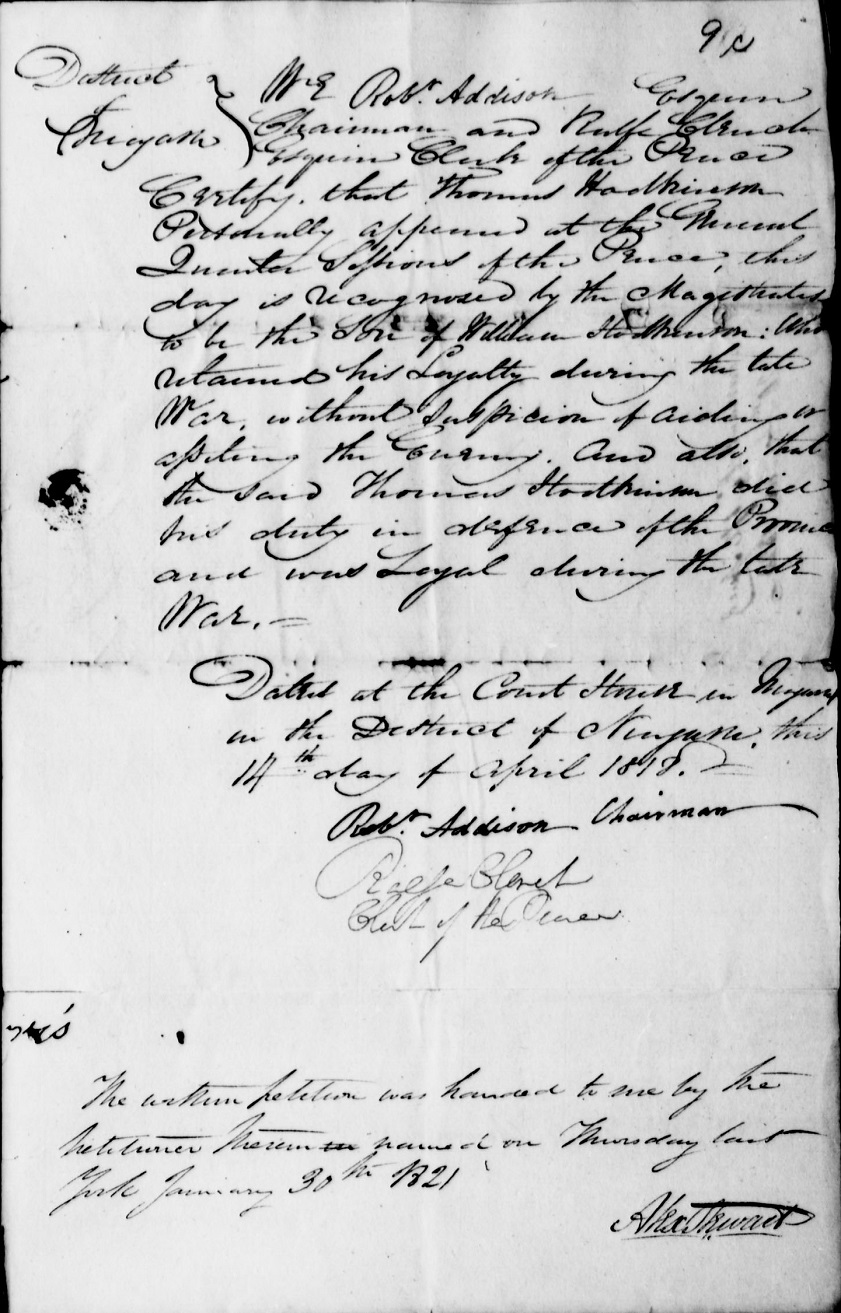 9
District
of
Niagara
We Robt. Addison Esquire
Chairman and Ralfe Clench
Esquire Clerk of the Peace
Certify, that Thomas Hodkinson
Personally appeared at the General
Quarter Sessions of the Peace, this
day is recognised by the Magistrates
to be the Son of William Hodkinson: Who
retained his Loyalty during the late
War, without Suspicion of aiding or
assisting the Enemy. And also, that
the Said Thomas Hodkinson did
his duty in defence of the Province
and was Loyal during the late
War.
Dated at the Court House in Niagara
in the District of Niagara, this
14th day of April 1818.
Robt. Addison Chairman
Ralfe Clench
Clerk of the Peace
The written petition was handed to me by the
petitioner therein named on Thursday last
York January 30th 1821
Alex Stewart